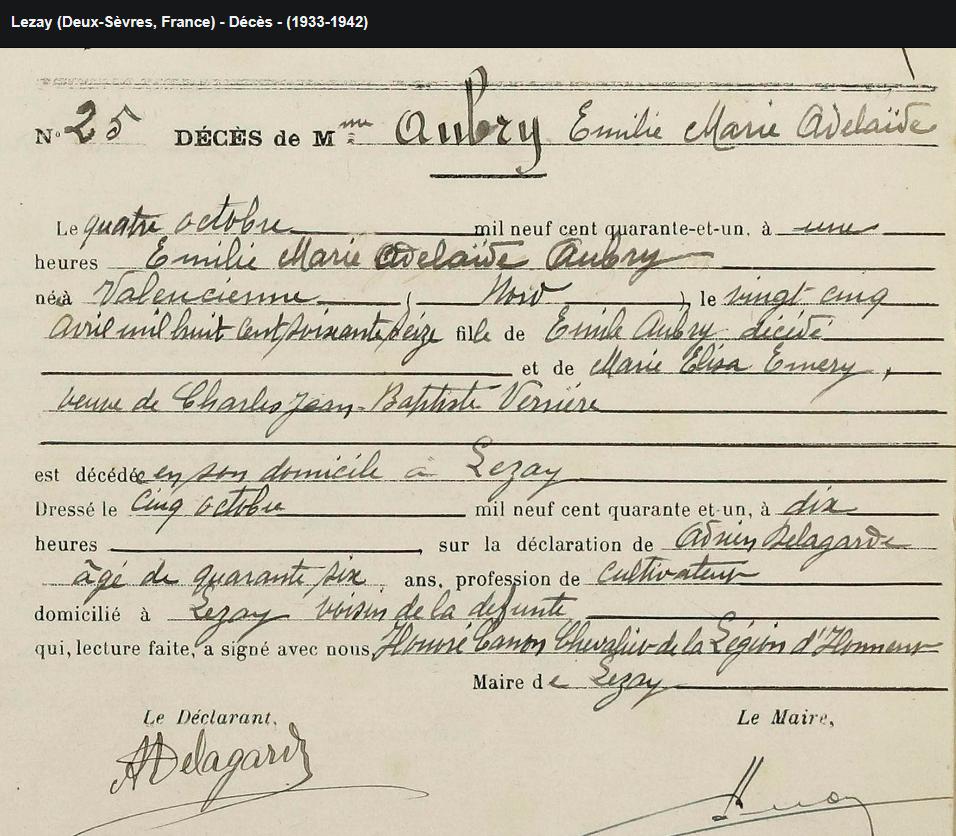 Lezay (Deux-Sèvres, France) - Décès - (1933-1942)
N° 25 DÉCÈS de Mme Aubry Emilie Marie Adelaïde
Le quatre octobre mil neuf cent quarante-et-un, à une
heures Emilie Marie Adelaïde Aubry
née à Valencienne ( Nord ), le vingt cinq
Avril mil huit cent soixante seize fille de Emile Aubry décédé
et de Marie Elisa Emery,
veuve de Charles Jean-Baptiste Verrière
est décédée en son domicile à Lezay
Dressé le cinq octobre mil neuf cent quarante et-un, à dix
heures , sur la déclaration de Adrien Delagarde
âgé de quarante six ans, profession de cultivateur
domicilié à Lezay voisin de la defunte
qui, lecture faite, a signé avec nous, Honoré Canon Chevalier de la Légion d'Honneur
Maire de Lezay
Le Déclarant, Le Maire,
ADelagarde